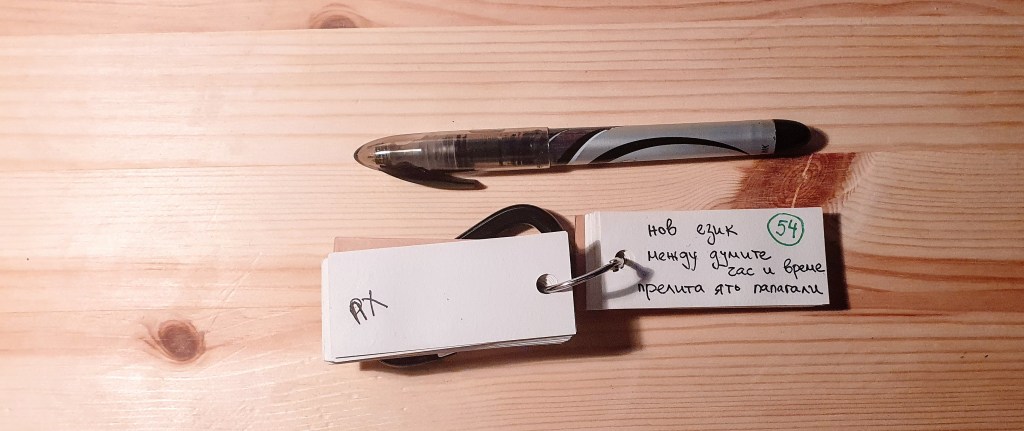 нов език
54
между думите
час и време
прелита ято папагали
ЯХ